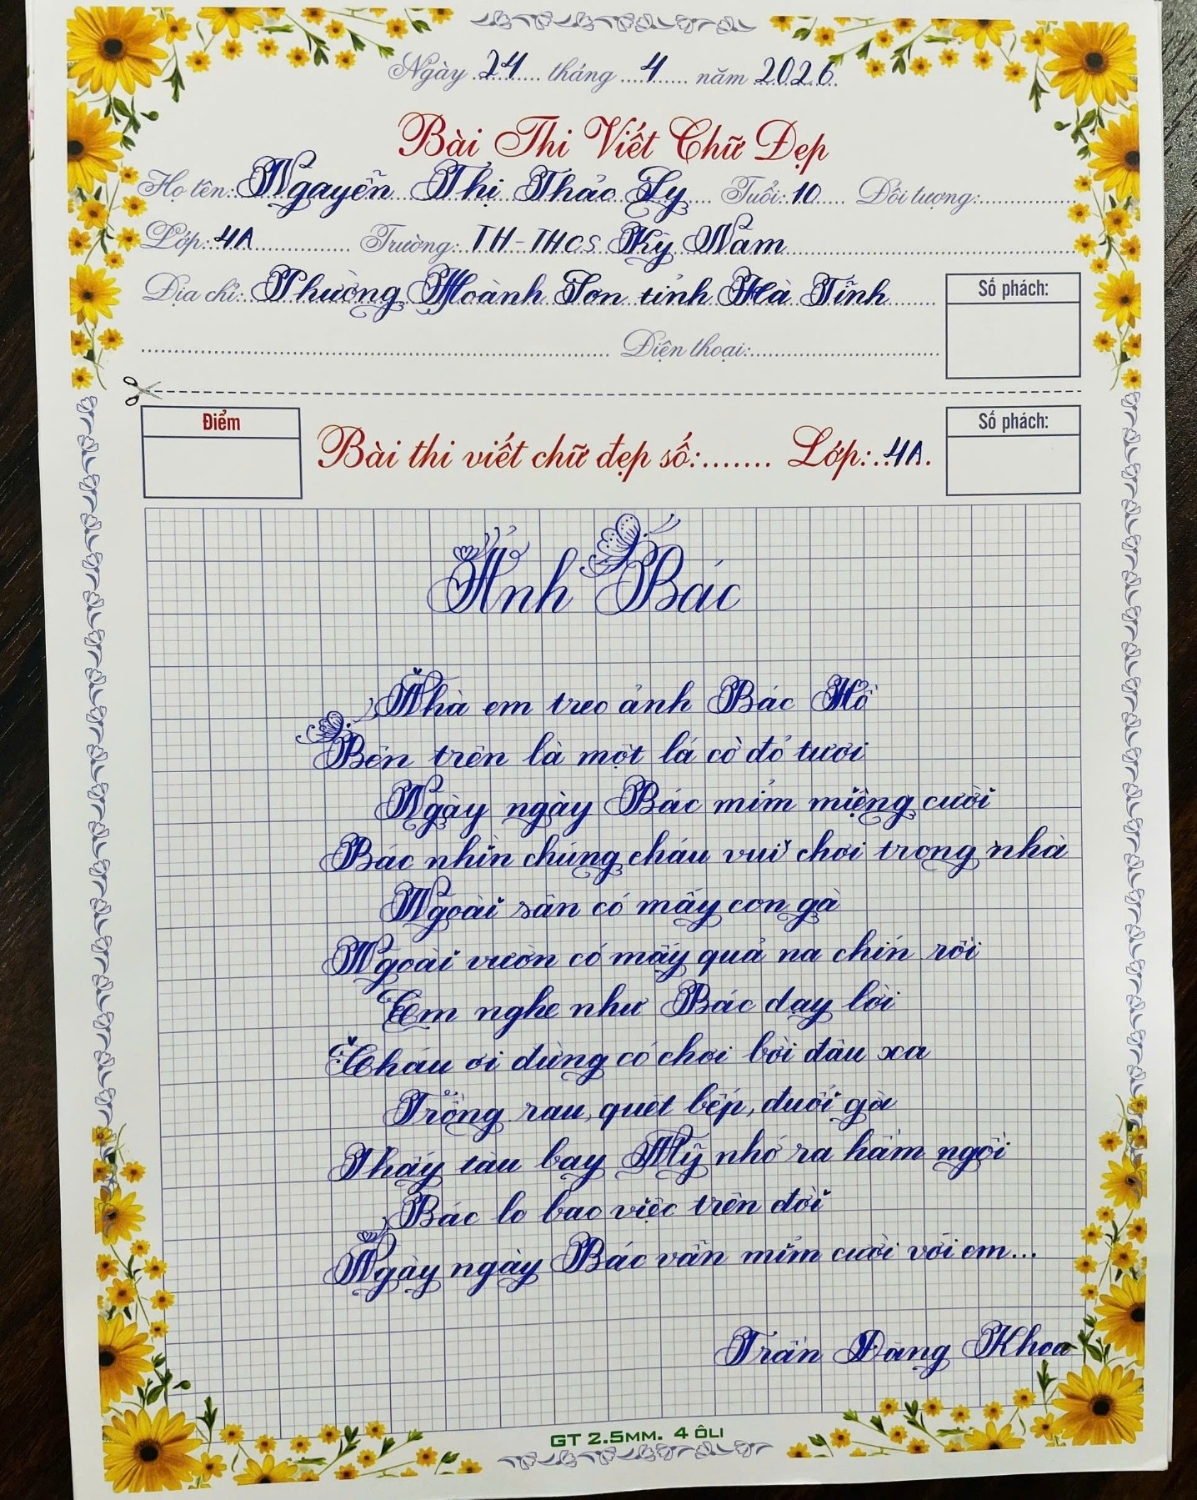 Ngày 24 tháng 4 năm 2026
Bài Thi Viết Chữ Đẹp
Họ tên: Nguyễn Thị Thảo Ly Tuổi: 10 Đối tượng:
Lớp: 4A Trường: TH-THCS Kỳ Nam
Địa chỉ: Phường Hoành Sơn tỉnh Hà Tĩnh
Số phách:
Điện thoại:
Điểm
Bài thi viết chữ đẹp số:....... Lớp: 4A.
Số phách:
Ảnh Bác
Nhà em treo ảnh Bác Hồ
Bên trên là một lá cờ đỏ tươi
Ngày ngày Bác mỉm miệng cười
Bác nhìn chúng cháu vui chơi trong nhà
Ngoài sân có mấy con gà
Ngoài vườn có mấy quả na chín rồi
Em nghe như Bác dạy lời
Cháu ơi đừng có chơi bời đâu xa
Trồng rau, quét bếp, đuổi gà
Thấy tàu bay Mỹ nhớ ra hầm ngồi
Bác lo bao việc trên đời
Ngày ngày Bác vẫn mỉm cười với em...
Trần Đăng Khoa
GT 2.5MM. 4 ÔLI